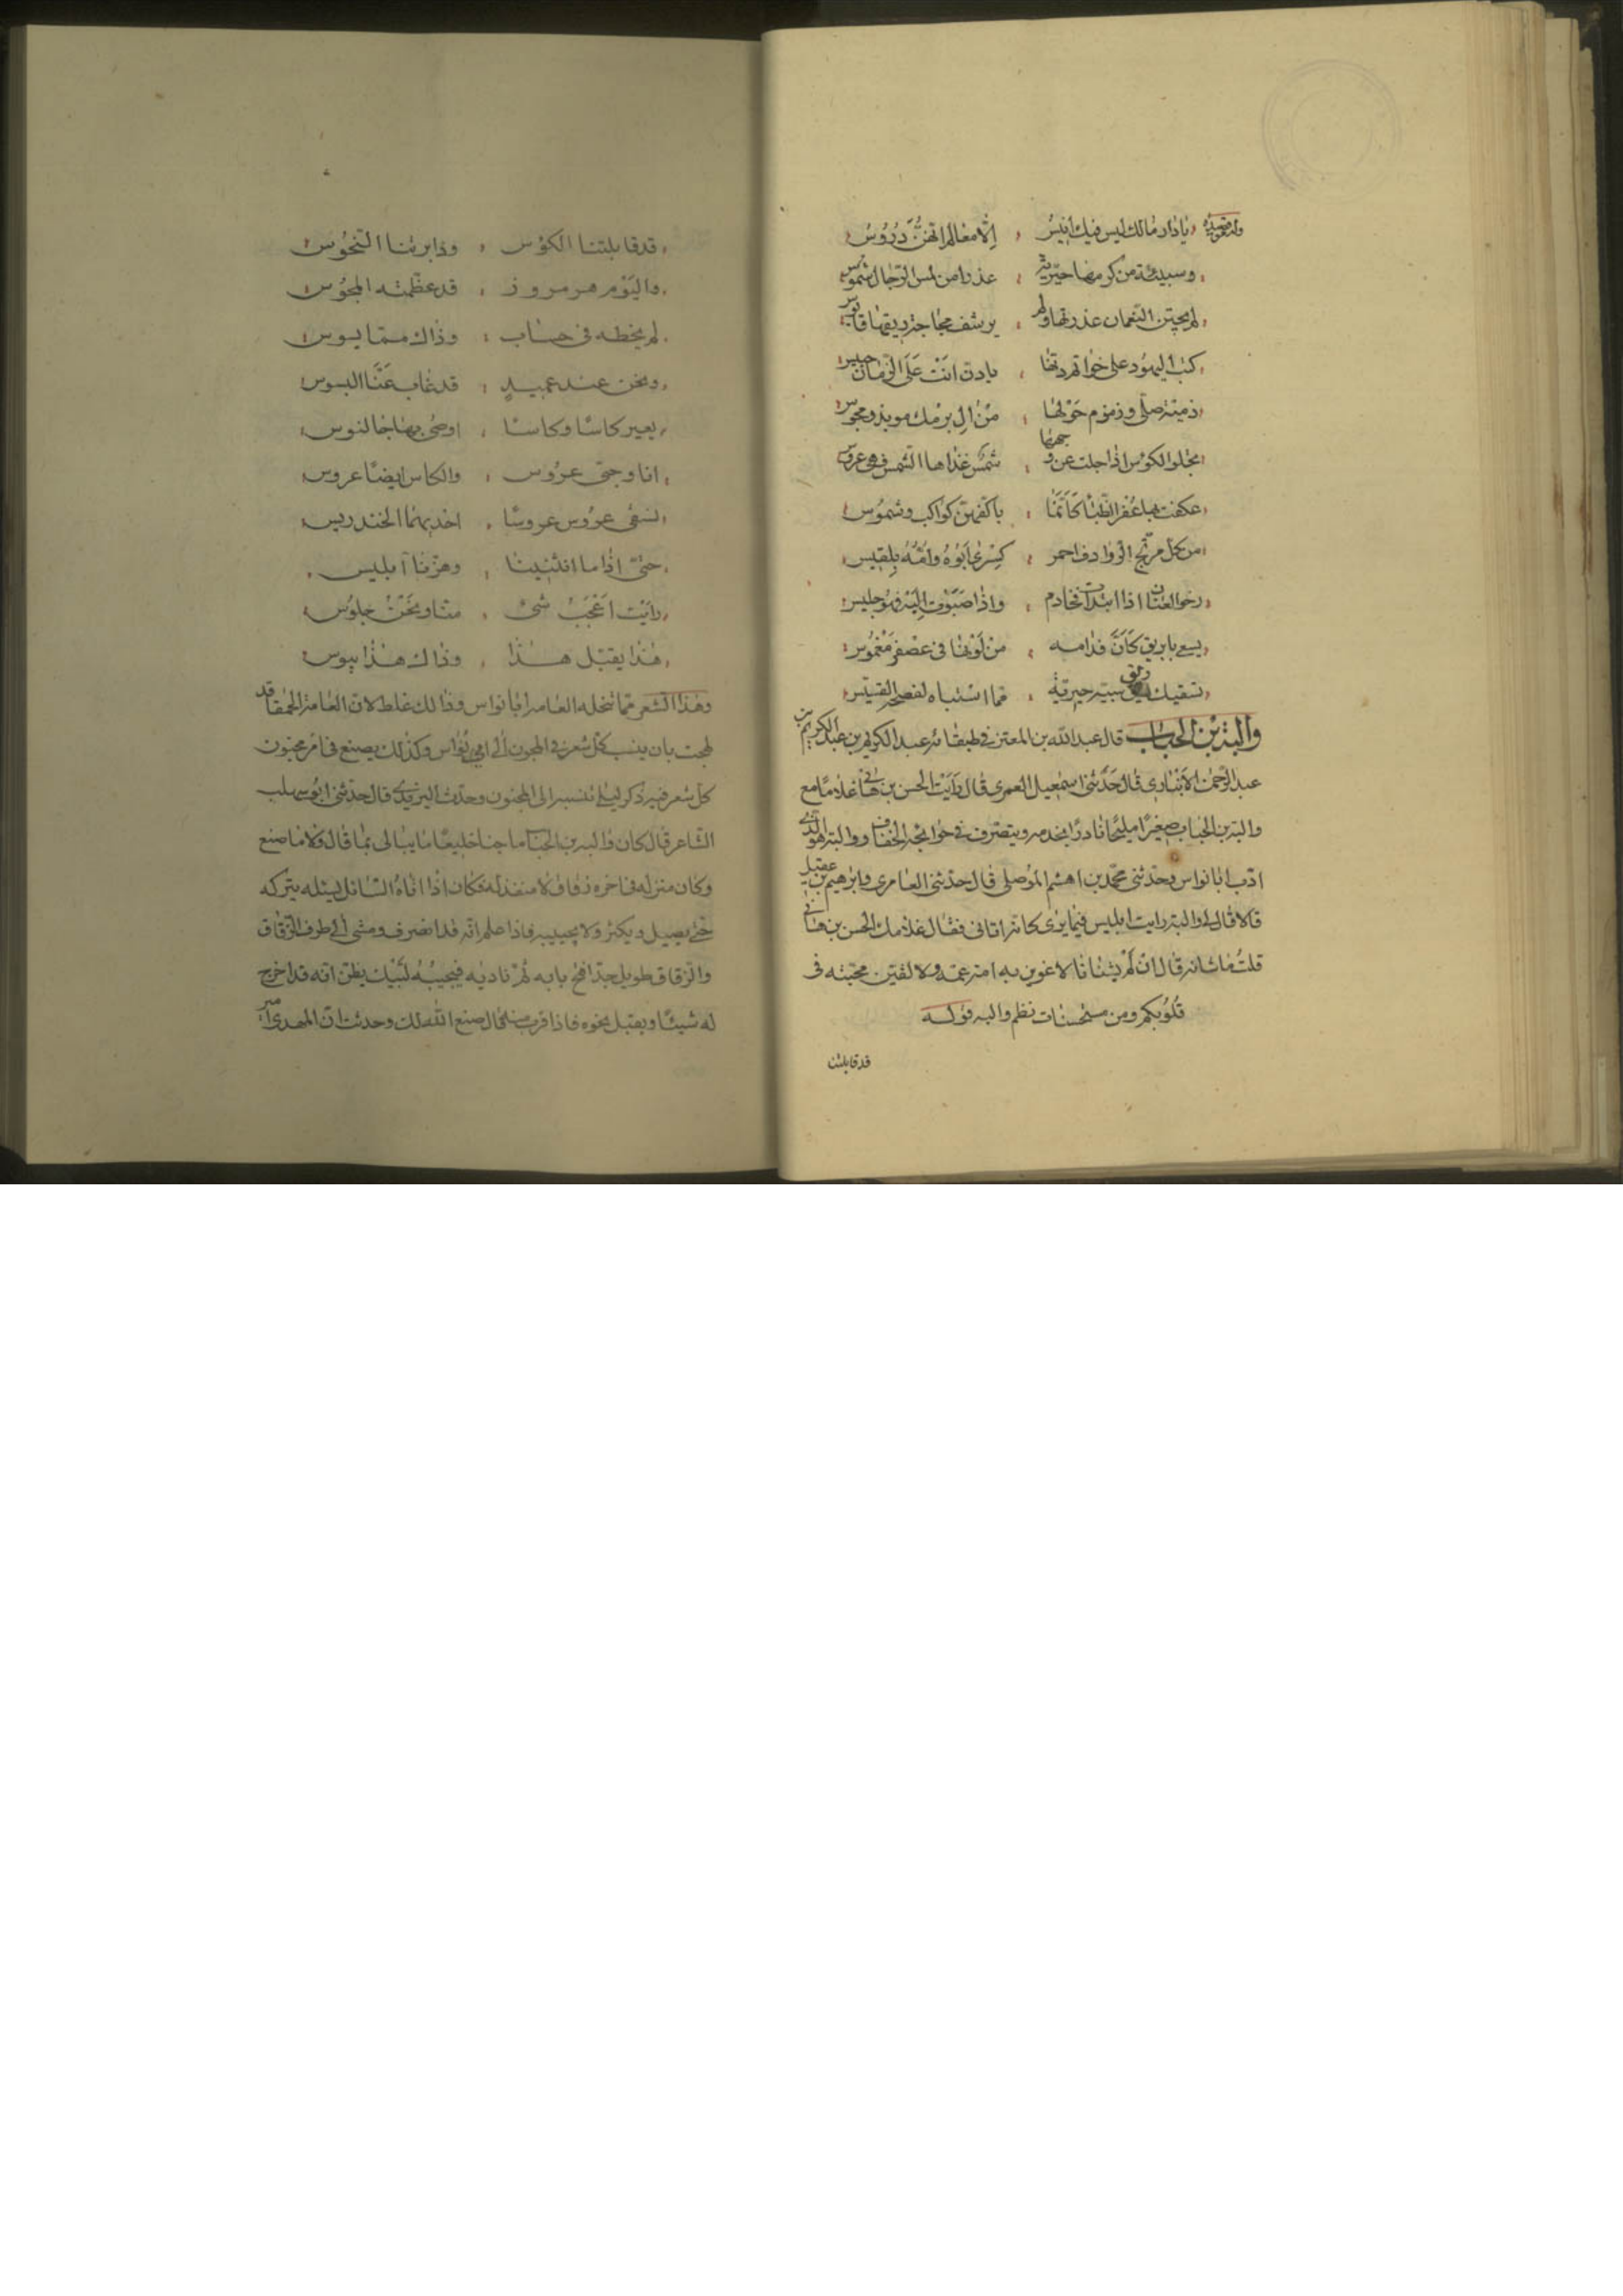 وله قصيدة يا دار مالك ليس فيك انيس الا معالم ايهن دروس
وسبيئة من كرمها حيرية عذراء من لمس الرجال شموس
لم يجتن النعمان عذرتها ولم يرشف مجاجة ريقها قابوس
كتب اليهود على خواتم دنها يا دن انت على الزمان حبيس
ذمية صلى وزمزم حولها من ال برمك موبذ ومجوس
تجلو الكوس اذا جلت عن وجهها شمس غذاها الشمس فهي عروس
عكفت بها عفر الظبا كانما باكفهن كواكب وشموس
من كل مرتج الروادف احمر كسرى ابوه وامه بلقيس
رخو العنان اذا ابتدات فخادم واذا صبوت اليه فهو جليس
يسعى بابريق كان فدامه من لونها في عصفر مغموس
تسقيك ريق سبية حيرية
والبة بن الحباب قال عبد الله بن المعتز في طبقاته عبد الكريم بن عبد الكريم بن
عبد الرحمن الانباري قال حدثني اسمعيل العمري قال رايت الحسن بن هانئ غلاما مع
والبة بن الحباب صغيرا مليحا نادرا يخدمه ويتصرف في حوائجه الخفاف ووالبة هو الذي
ادب ابا نواس وحدثني محمد بن اهشم الموصلي قال حدثني العامري وابرهيم بن عقيل
قالا قال لي والبة رايت ابليس فيما يرى كانه اتاني فقال غلامك الحسن بن هانئ
قلت ما شانه قال ان لم يشانا لاغوين به امة محمد ولالقين محبته في
قلوبكم ومن مستحسنات نظم والبه قوله
قد قابلتن
قد قابلتنا الكؤس ودابرتنا النحوس
واليوم هرمزروز قد عظمته المجوس
لم يخطه في حساب وذاك مما يسوس
ونحن عند عميد قد غاب عنا البسوس
يعير كاسا وكاسا
انا وحبي عروس والكاس ايضا عروس
نسقى عروس عروسا احديهما الخندريس
حتى اذا ما انثنينا وهزنا ابليس
رايت اعجب شيئ منا ونحن جلوس
هذا يقبل هذا وذاك هذا يبوس
وهذا الشعر مما تنحله العامة ابا نواس وذالك غلط لان العامة الحمقا قد
لهجت بان ينسب كل شعر في المجون الى ابي نواس وكذلك يصنع في امر مجنون
كل شعر فيه ذكر ليلى تنسبه الى المجنون وحدث اليزيدي قال حدثني ابو سهلب
الشاعر قال كان والبة بن الحباب ماجنا خليعا ما يبالي بما قال ولا ما صنع
وكان منزله في اخره زقاق لا منفذ له فكان اذا اتاه السائل يسئله يتركه
حتى يصيل ويكثر ولا يجيبه فاذا علم انه قد انصرف ومشى الى طرف الزقاق
والزقاق طويل جدا فتح بابه ثم ناديه فيجيبه لبيك يظن انه قد اخرج
له شيئا ويقبل نحوه فاذا قرب منه قال صنع الله لك وحدث ان المهدي امير